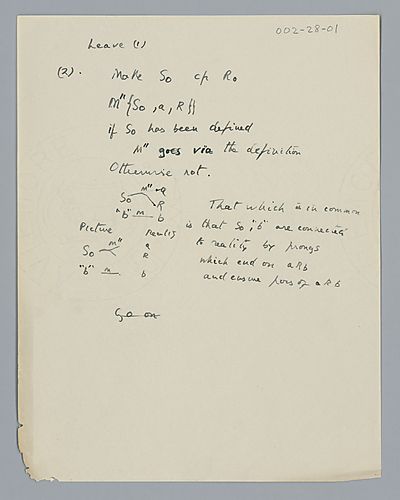 002-28-01
Leave (1)
(2). Make So cp Ro
M"{So, a, R}
if So has been defined
M" goes via the definition
Otherwise not.
So M" a
R
"b" m b
That which is in common
Picture reality is that So, "b" are connected
So M" a to reality by prongs
R which end on aRb
"b" m b and ensure poss of aRb
Go on